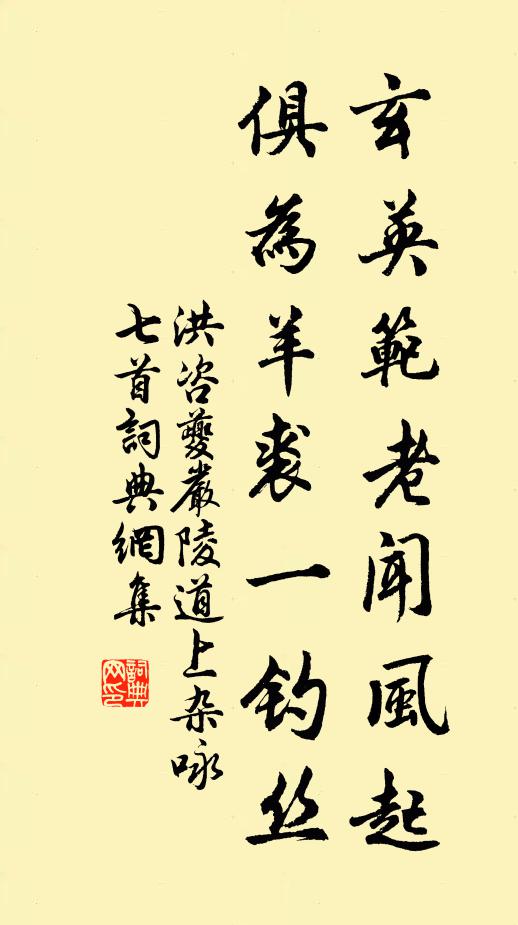 玄英範老聞風起
俱為羊裘一釣丝
洪咨夔嚴陵道上杂咏
七首詞典網集
詞典网印